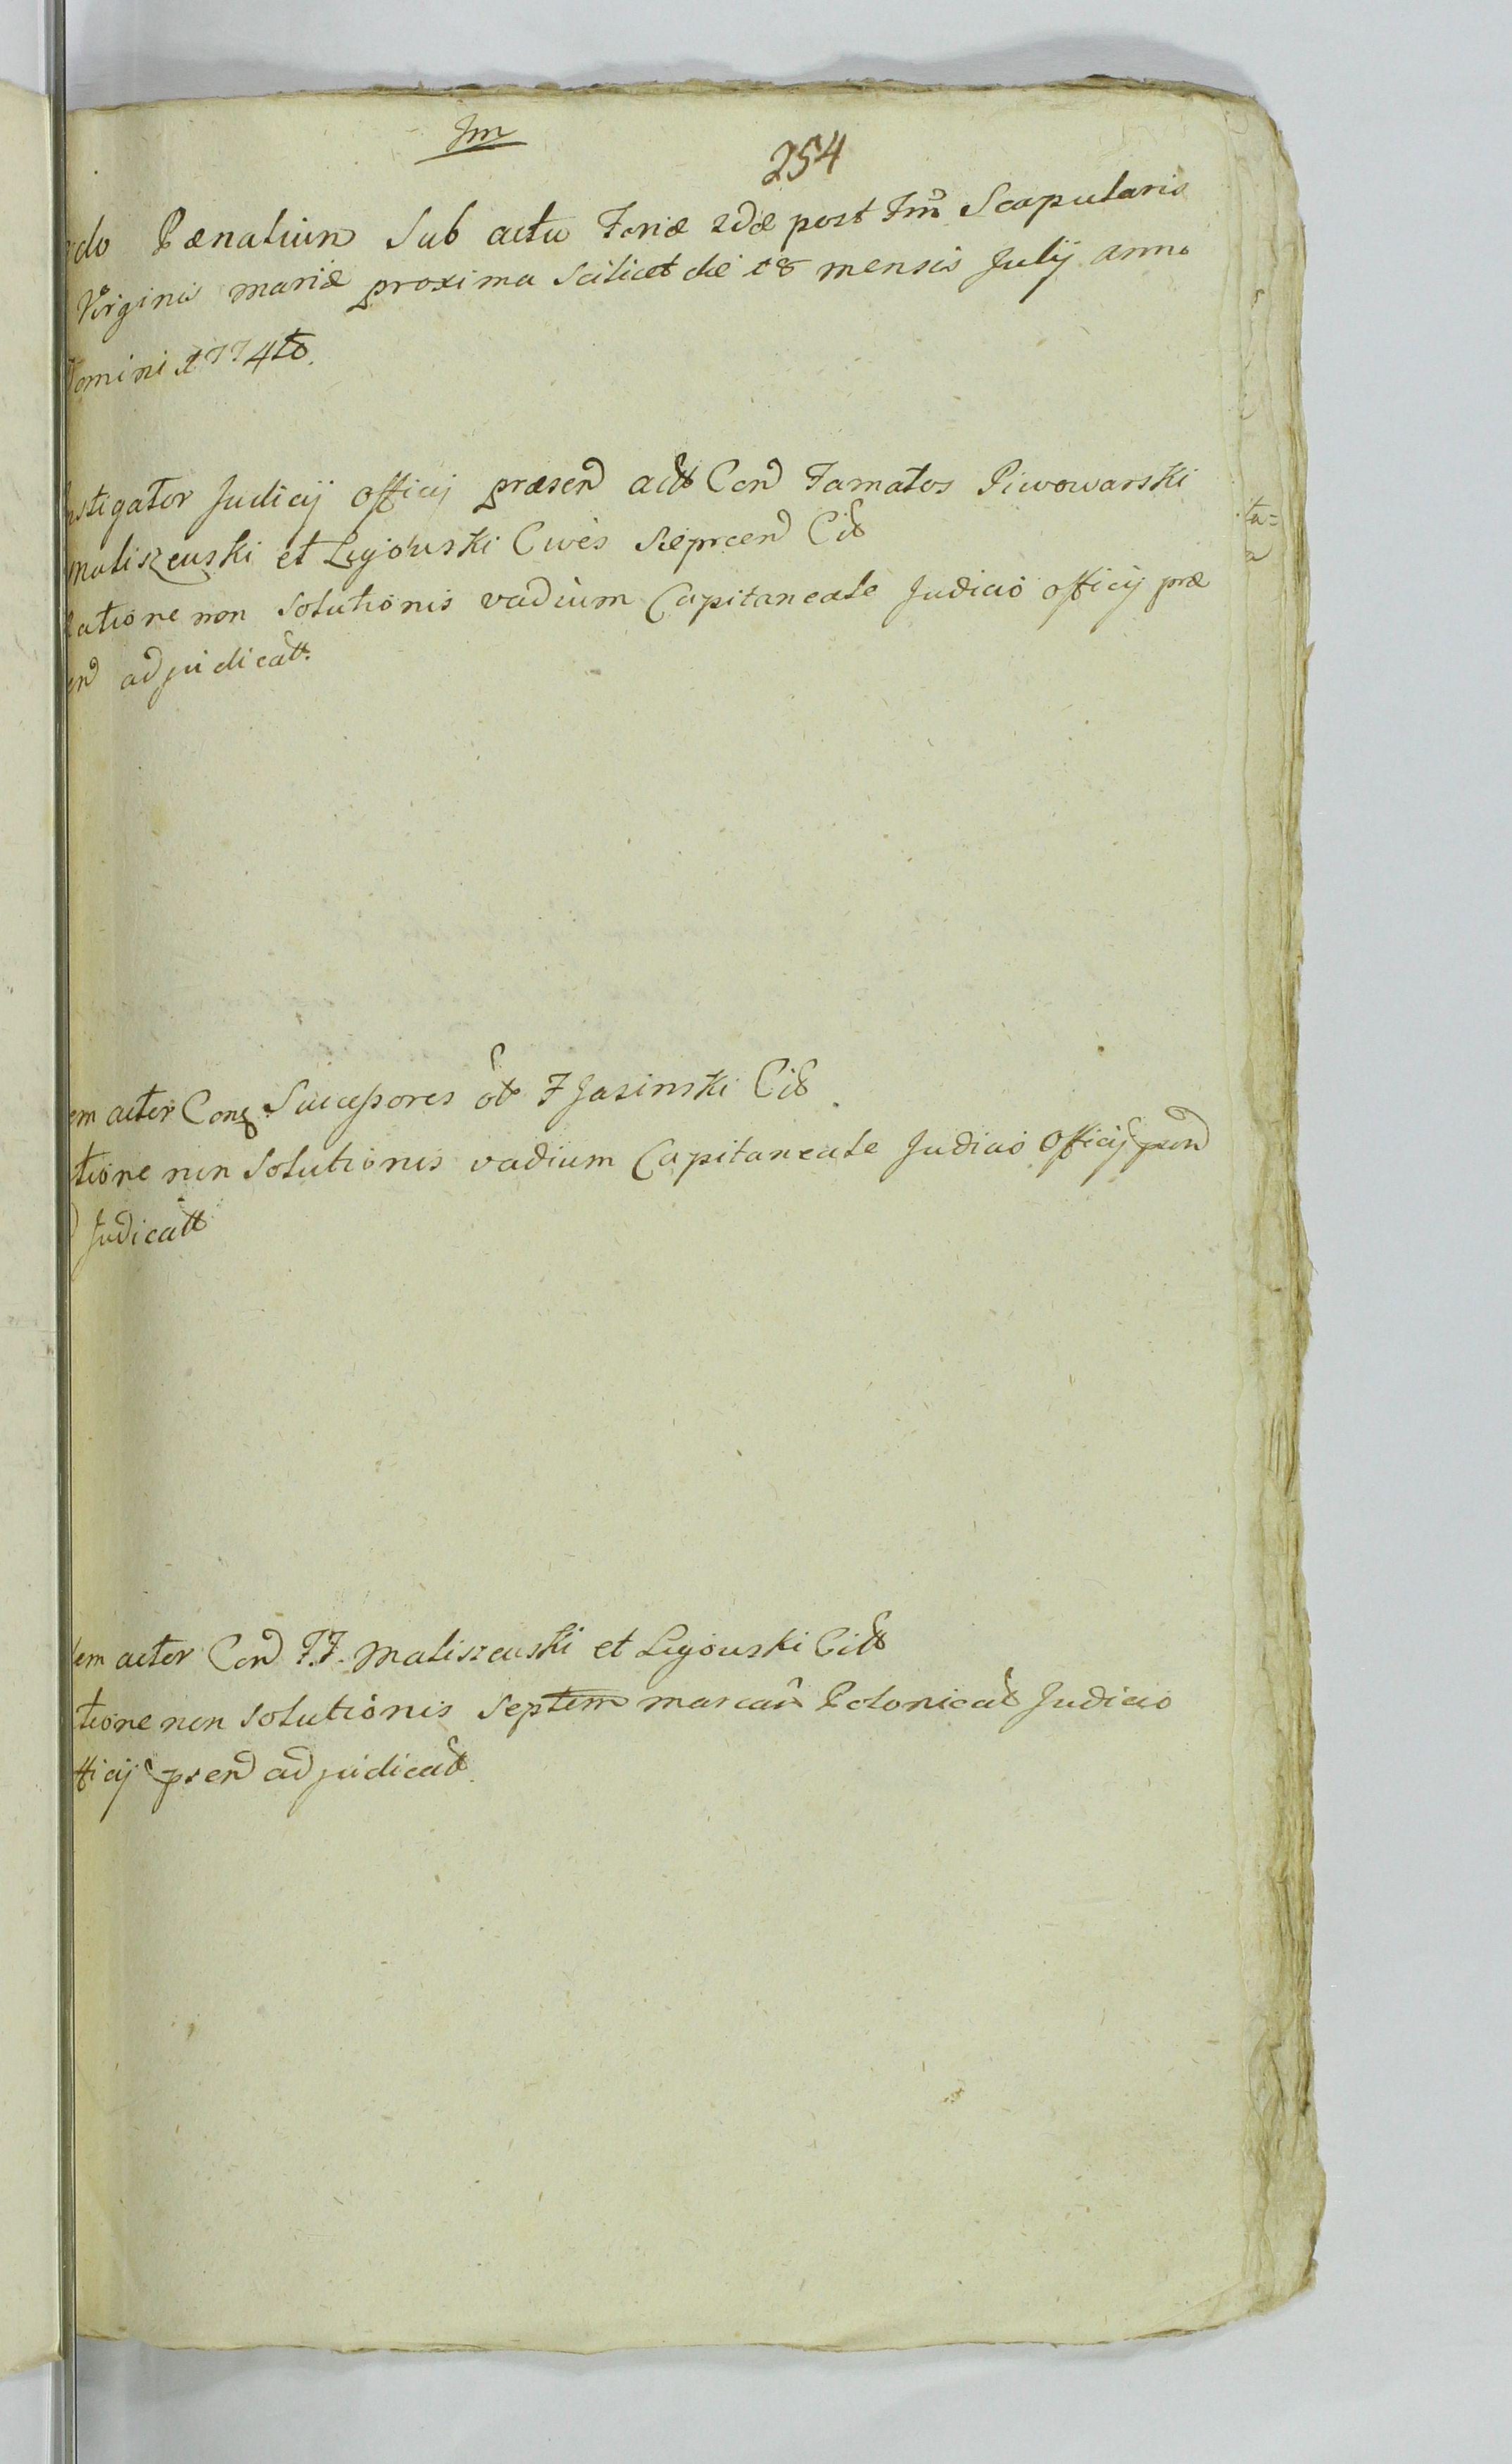 Im
254
do Pænalium Sub actu Feriæ 2dæ post Fm̃ Scapularis
Virginis mariæ proxima Scilicet die 18 mensis Julij anno
Domini 1774to.
nstigator Judicij Officij præsen actt Con Famatos Piwowarski
Maliszewski et Legowski Cives Sieprcen Citt
atione non Solutionis vadium Capitaneale Judicio officij præ
en adjudicatt.
em actor Con Successores ot F Jasinski Citt
tione non Solutionis vadium Capitaneale Judicio Officij pren
Judicatt
em actor Con F.F. Maliszewski et Legowski Citt
tione non Solutionis Septem marcar Polonicat Judicio
fficij pren adjudicatt.
ta=
a